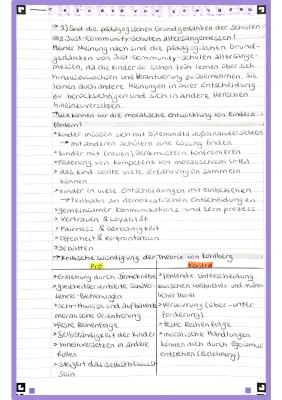 THEORIE VON KOHLBERG
→ 1) Sind die pädagogischen Grundgedanken der Schulen
als Just-Community-Schulen altersangemessen?
Meiner Meinung nach sind die pädagogischen Grund-
gedanken von Just-Community-Schulen altersange-
messen, da die Kinder so schon früh lernen über sich
hinauszuwachsen und Verantwortung zu übernehmen. Sie
lernen auch andere Meinungen in ihrer Entscheidung
zu berücksichtigen und sich in andere Menschen
hineinzuversetzen.
→ Wie können wir die moralische Entwicklung von Kindern
fördern?
> Kinder müssen sich mit Dilemmata auseinandersetzen
→ mit anderen Schülern eine Lösung finden
> Kinder mit (neuen) Denkmustern konfrontieren
> Förderung von Kompetenz von moralischem Urteil
> das Kind sollte viele Erfahrungen sammeln
können
> Kinder in viele Entscheidungen mit einbeziehen
→ Teilhabe an demokratischen Entscheidungen
> gemeinsamer Kommunikations- und Lernprozess
> Vertrauen & Loyalität
> Fairness & Gerechtigkeit
> Offenheit & Konfrontation
> Debatten
→ Kritische Würdigung der Theorie von Kohlberg
Pro
Kontra
> Erziehung durch Demokratie
> gleichheitsorientierte Schüler-
Lehrer-Beziehungen
> schrittweise und aufbauende
moralische Orientierung
> feste Reihenfolge
> Selbständigkeit der Kinder
> hineinversetzen in andere
Rollen
> steigert das Selbstbewusst
sein
> fehlende Unterscheidung
zwischen weiblicher und männ-
licher Moral
> Verwirrung (über-unter
forderung)
> feste Reihenfolge
> moralische Handlungen
können auch durch Egoismus
entstehen (Belohnung)